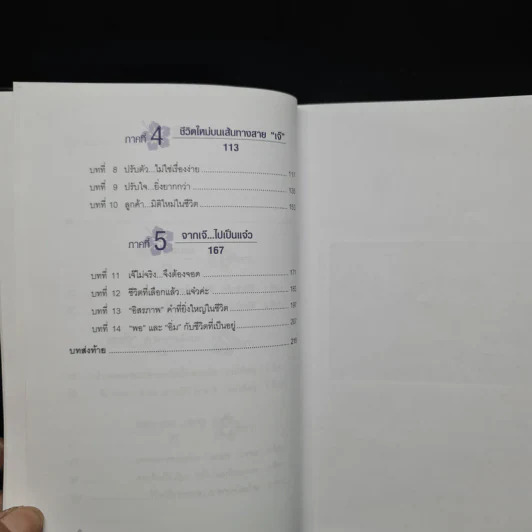 ภาคที่ 4 ชีวิตใหม่บนเส้นทางสาย "เจ๊"
113
บทที่ 8 ปรับตัว...ไม่ใช่เรื่องง่าย
บทที่ 9 ปรับใจ...ยิ่งยากกว่า
บทที่ 10 ลูกค้า...มิติใหม่ในชีวิต
ภาคที่ 5 จากเจ๊...ไปเป็นแจ๋ว
167
บทที่ 11 เจ๊ไม่จริง...จึงต้องจอด
บทที่ 12 ชีวิตที่เลือกแล้ว...แจ๋วค่ะ
บทที่ 13 "อิสรภาพ" คำที่ยิ่งใหญ่ในชีวิต
บทที่ 14 "พอ" และ "อิ่ม" กับชีวิตที่เป็นอยู่
บทส่งท้าย